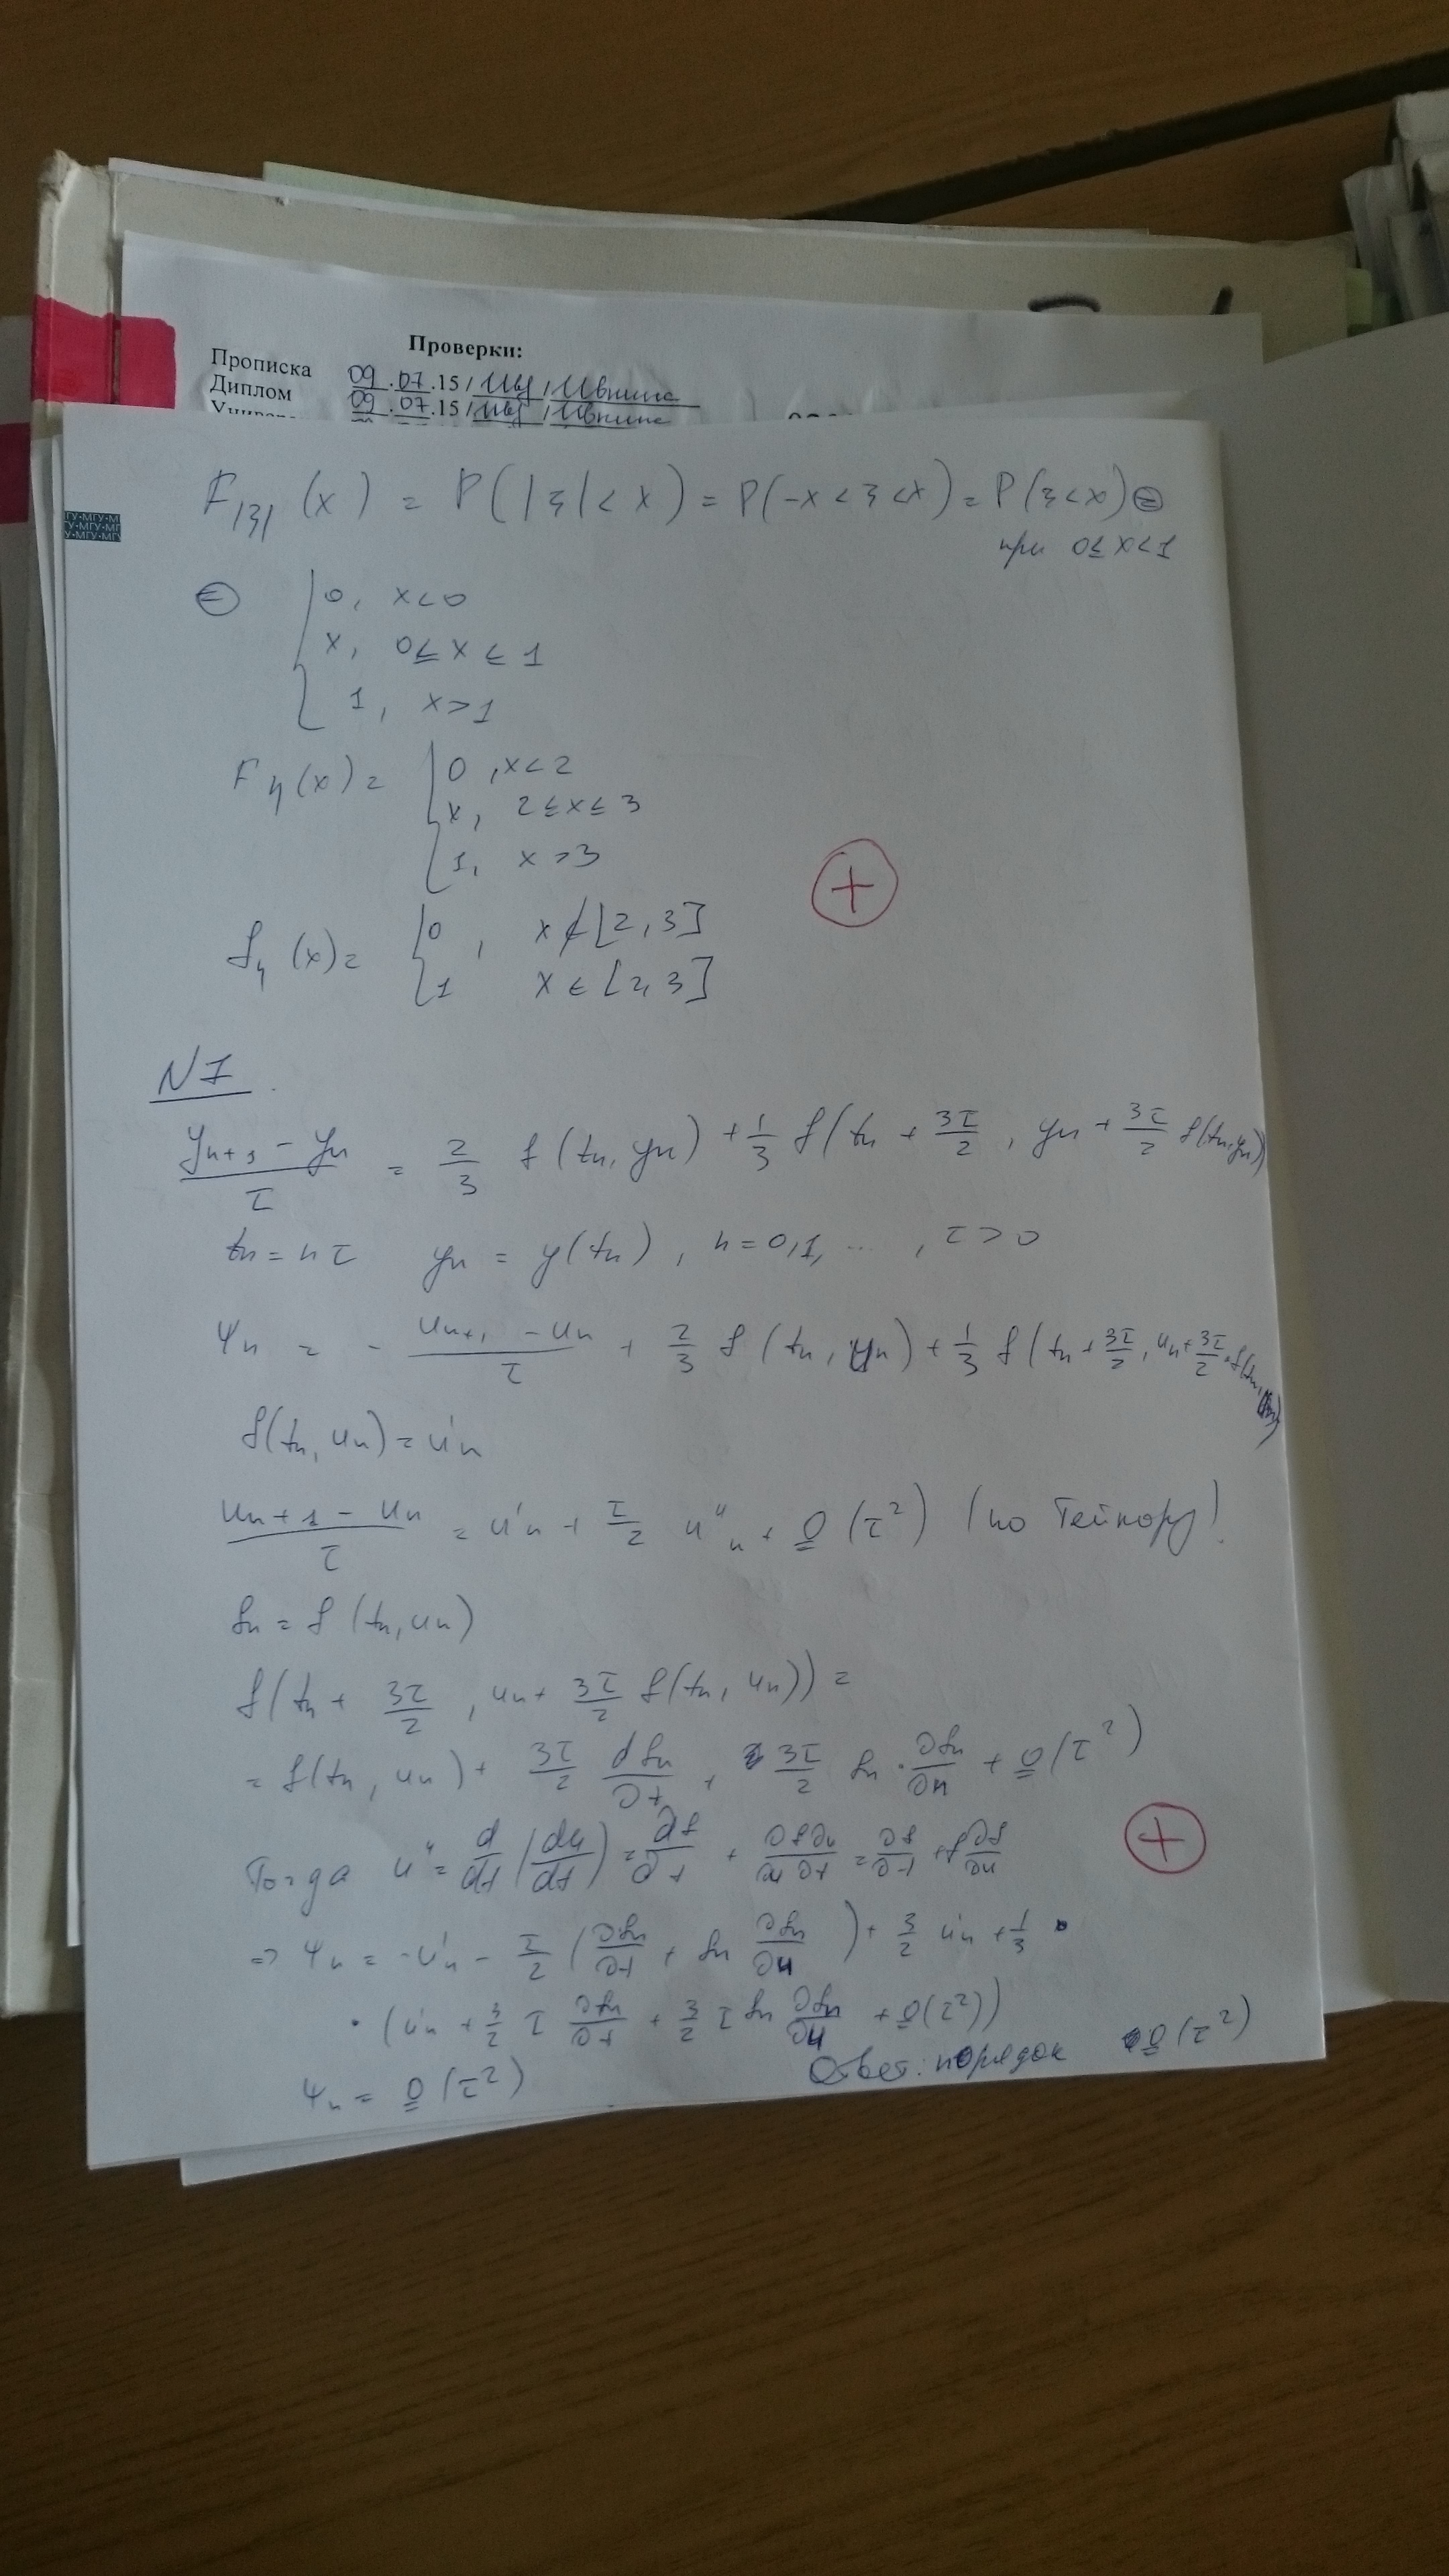 Проверки:
Прописка 09.07.15 /
Диплом 09.07.15 /
ГУ•МГУ•М
У•МГУ•МГ
F|ξ|(x) = P(|ξ|<x) = P(-x<ξ<x) = P(ξ<x) ⊜
при 0≤x<1
⊜ { 0, x<0
x, 0≤x≤1
1, x>1
Fη(x) = { 0, x<2
x, 2≤x≤3
1, x>3
fη(x) = { 0, x∉[2,3]
1 x∈[2,3]
+
N1
(yn+1 - yn)/τ = 2/3 f(tn, yn) + 1/3 f(tn + 3τ/2, yn + 3τ/2 f(tn,yn))
tn = nτ yn = y(tn), n=0,1,..., τ>0
Ψn = - (un+1 - un)/τ + 2/3 f(tn, un) + 1/3 f(tn + 3τ/2, un + 3τ/2 · f(tn,
f(tn, un) = u'n
(un+1 - un)/τ = u'n + τ/2 u''n + O(τ²) (по Тейлору)
fn = f(tn, un)
f(tn + 3τ/2, un + 3τ/2 f(tn, un)) =
= f(tn, un) + 3τ/2 dfn/∂t + 3τ/2 fn · ∂fn/∂u + O(τ²)
Тогда u'' = d/dt (du/dt) = ∂f/∂t + ∂f∂u/∂u∂t = ∂f/∂t + f∂f/∂u
+
=> Ψn = -u'n - τ/2 (∂fn/∂t + fn ∂fn/∂u) + 3/2 u'n + 1/3 ·
· (u'n + 3/2 τ ∂fn/∂t + 3/2 τ fn ∂fn/∂u + O(τ²))
Ψn = O(τ²)
Ответ: порядок O(τ²)